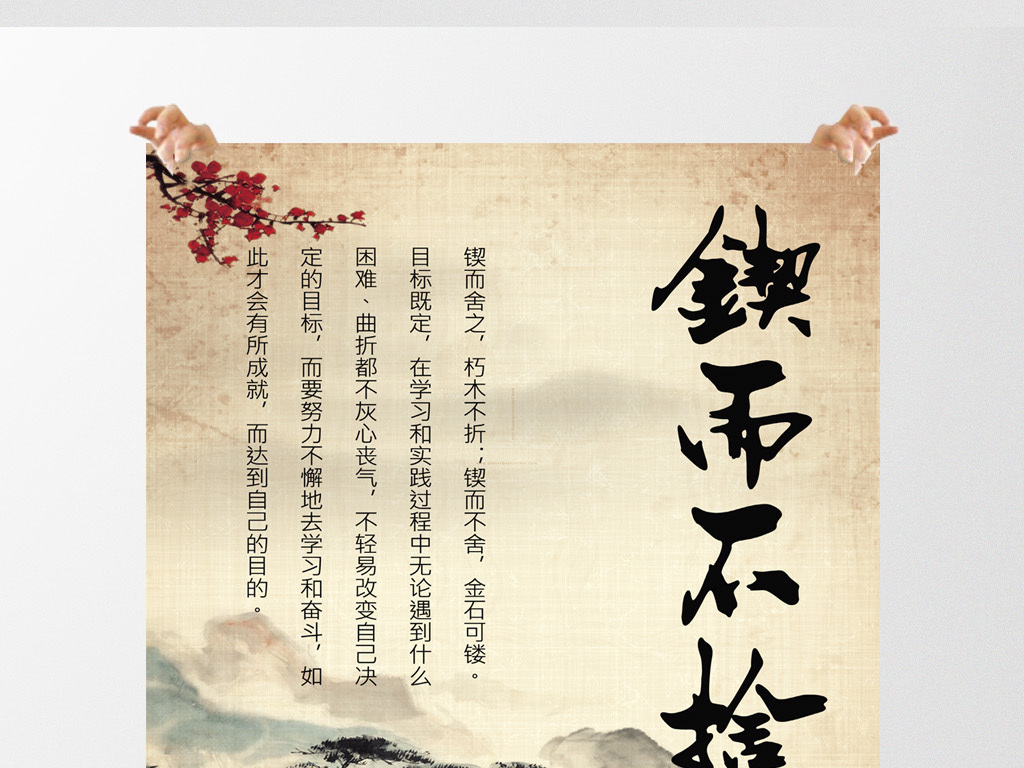 鍥而不捨
锲而舍之，朽木不折；锲而不舍，金石可镂。
目标既定，在学习和实践过程中无论遇到什么
困难、曲折都不灰心丧气，不轻易改变自己决
定的目标，而要努力不懈地去学习和奋斗，如
此才会有所成就，而达到自己的目的。